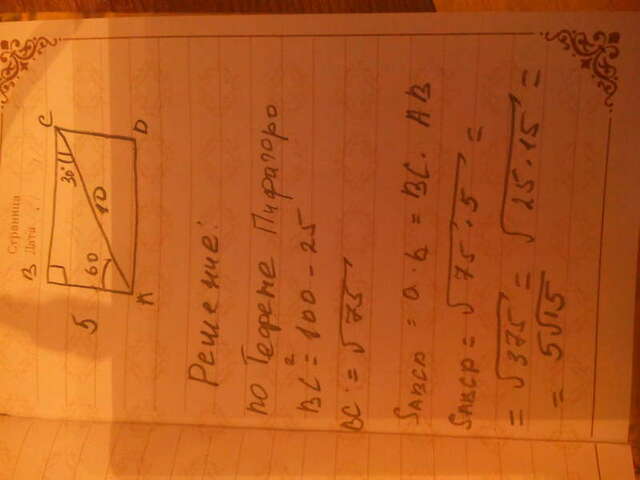 Страница
Дата
B
C
30°
5
60
10
A
D
Решение:
по Теореме Пифагора
BC² = 100 - 25
BC = √75
SABCD = a·b = BC·AB
SABCD = √75·5 =
= √375 = √25·15 =
= 5√15